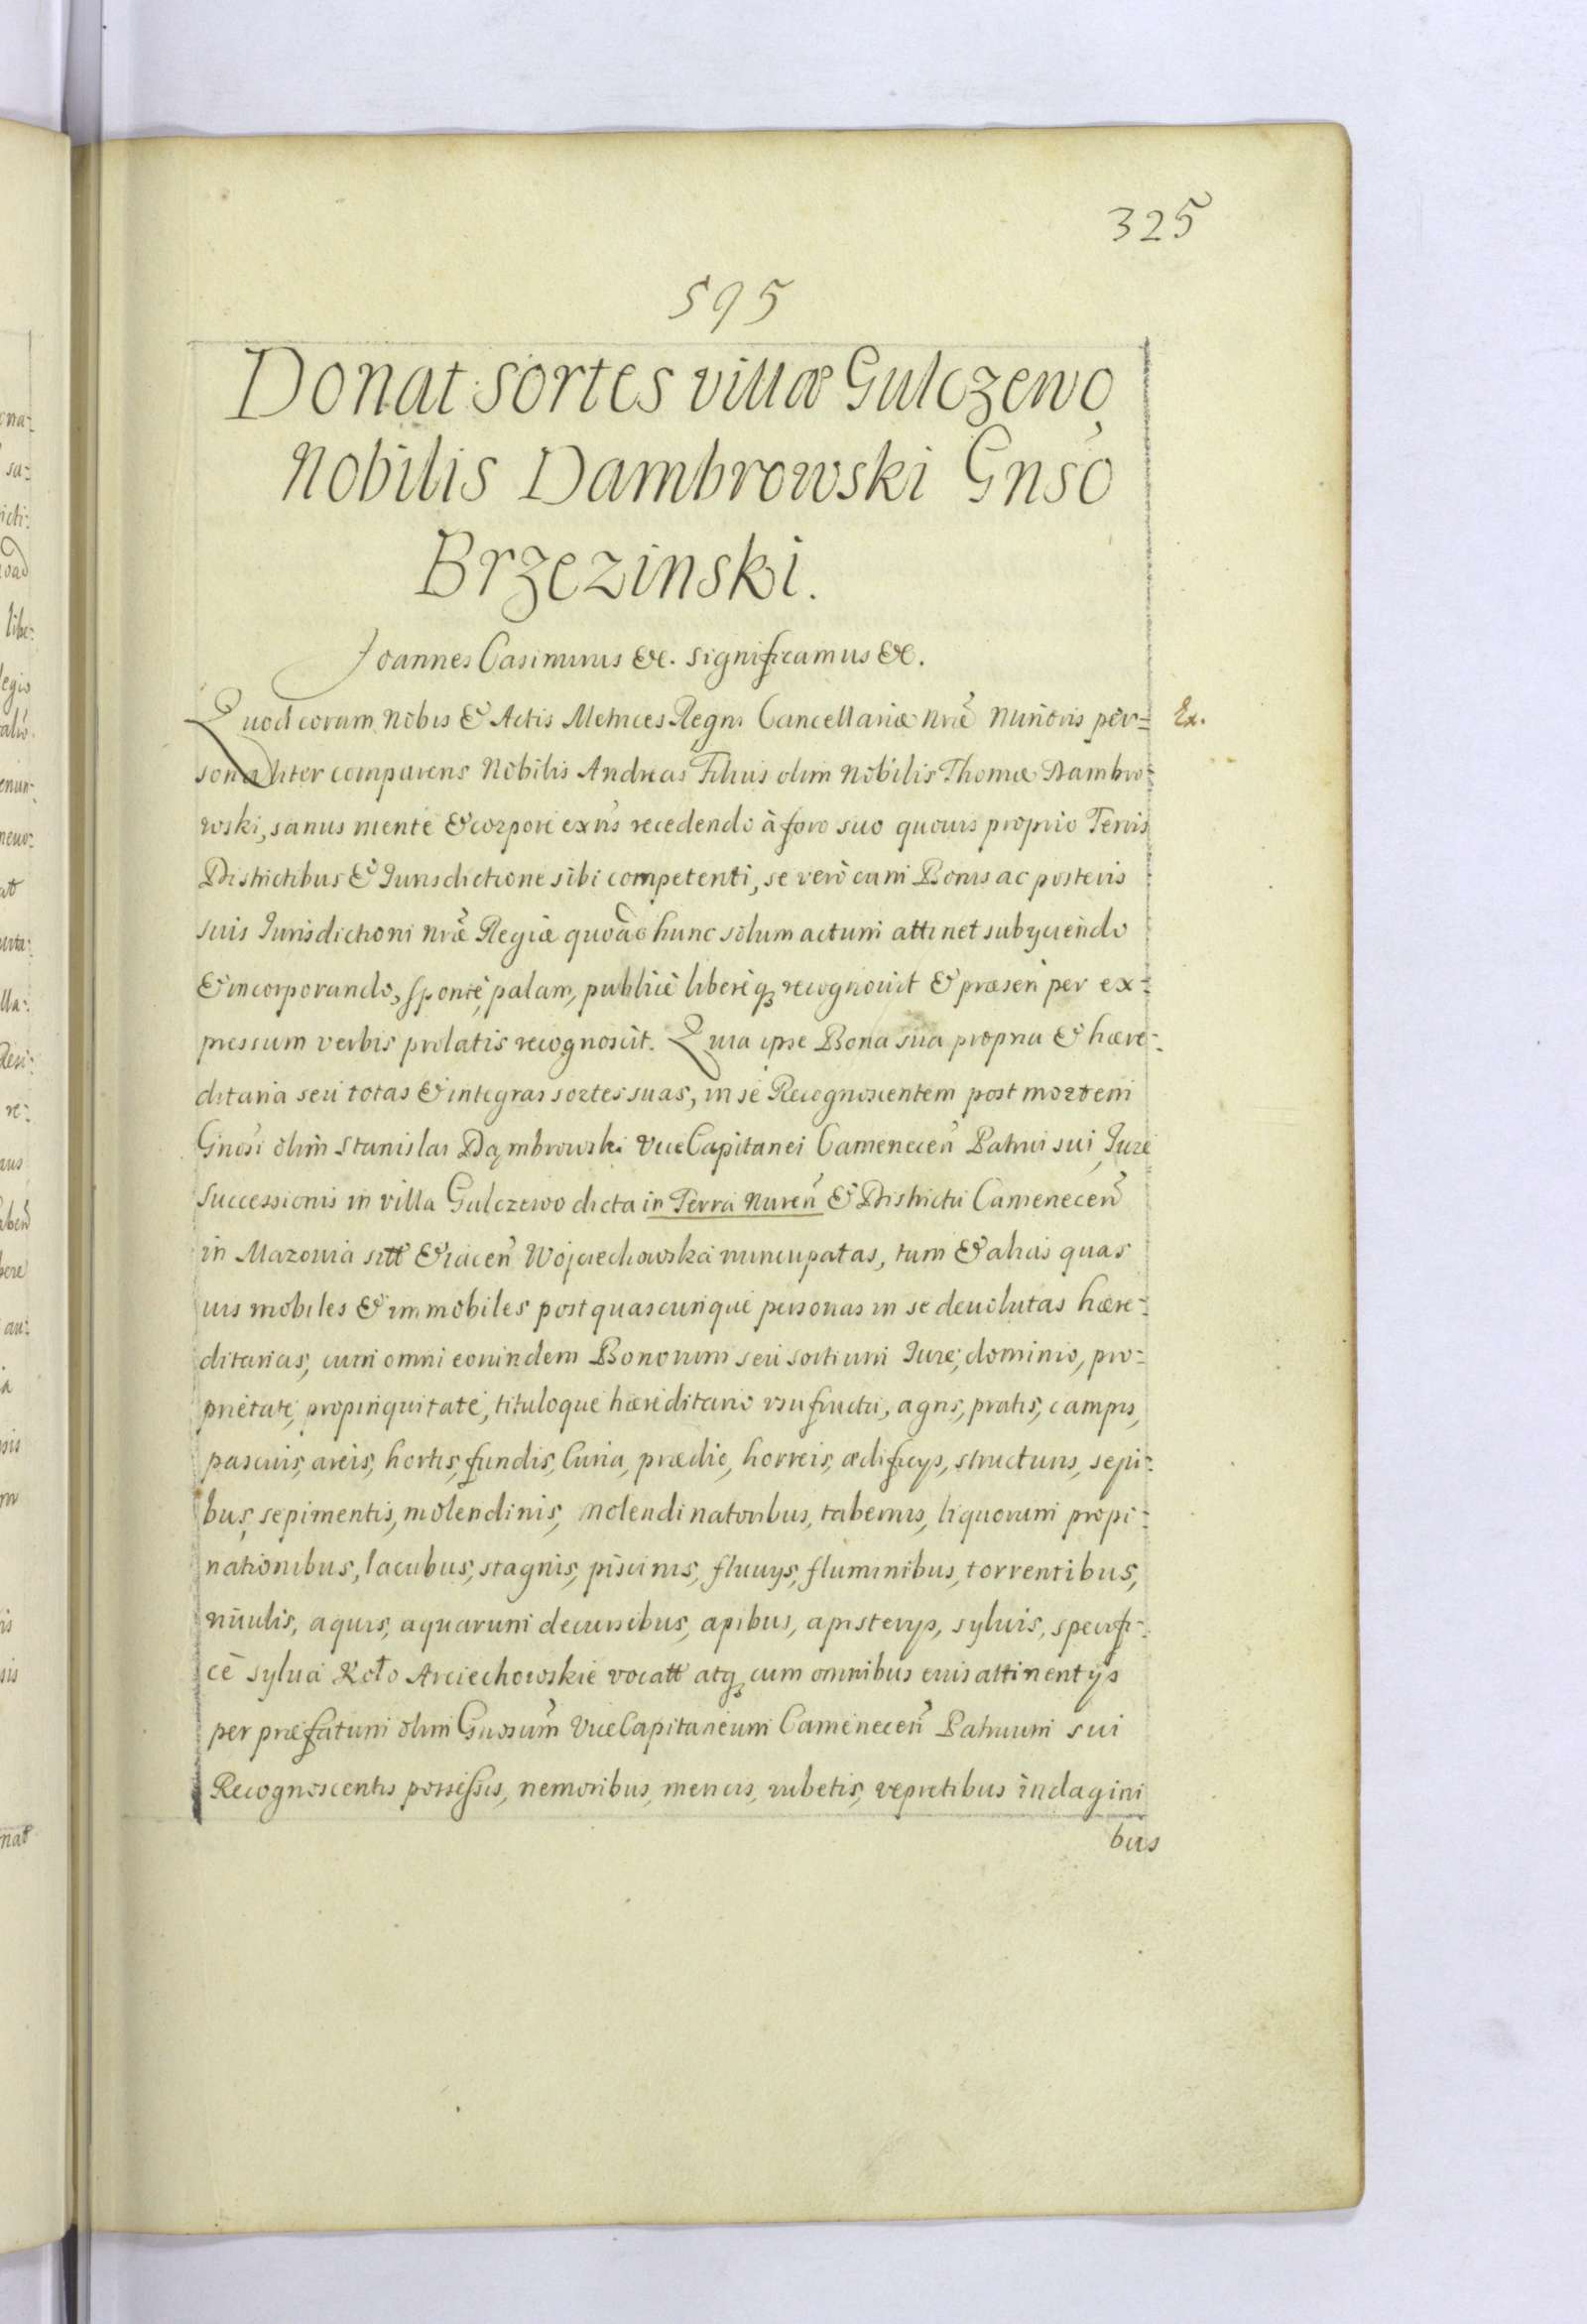 325
595
Donat sortes villæ Gulczewo
Nobilis Dambrowski Gnso
Brzezinski.
Joannes Casimirus &c. significamus &c.
Quod coram Nobis & Actis Metrices Regni Cancellariæ nræ Minoris per-
sonaliter comparens Nobilis Andreas Filius olim Nobilis Thomæ Dambro-
wski, sanus mente & corpore exñs recedendo à foro suo quovis proprio Terris
Districtibus & Jurisdictione sibi competenti, se verò cum Bonis ac posteris
suis Jurisdictioni nræ Regiæ quoad hunc solum actum attinet subyciendo
& incorporando, sponte, palam, publicè liberèq, recognouit & præsen per ex-
pressum verbis prolatis recognoscit. Quia ipse Bona sua propria & hære-
ditaria seu totas & integras sortes suas, in se Recognoscentem post mortem
Gnosi olim Stanislai Dąmbrowski ViceCapitanei Camenecen Patrui sui, Jure
Successionis in villa Gulczewo dicta in Terra Nuren & Districtu Camenecen
in Mazouia sitt & iacen Wojciechowska nuncupatas, tum & alias quas
uis mobiles & immobiles post quascunque personas in se deuolutas hære-
ditarias, cum omni eorundem Bonorum seu sortium Jure, dominio, pro-
prietate, propinquitate, tituloque hæreditario vsufructu, agris, pratis, campis,
pascuis, areis, hortis, fundis, Curia, prædio, horreis, ædificys, structuris, sepi-
bus, sepimentis, molendinis, Molendinatoribus, tabernis, liquorum propi-
nationibus, lacubus, stagnis, piscinis, fluuys, fluminibus, torrentibus,
riuulis, aquis, aquarum decursibus, apibus, apisterys, syluis, specifi-
cè sylua Koło Arciechowskie vocatt atq, cum omnibus euis attinentijs
per præfatum olim Gnosum ViceCapitaneum Camenecen Patruum sui
Recognoscentis possessis, nemoribus, mericis, rubetis, vepretibus indagini
bus
Ex.